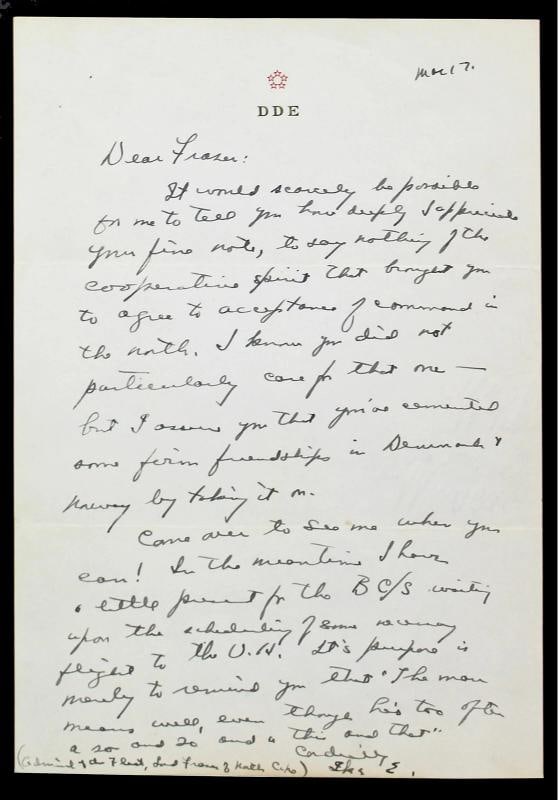 Mar 17.
DDE
Dear Fraser:
It would scarcely be possible
for me to tell you how deeply I appreciate
your fine note, to say nothing of the
cooperative spirit that brought you
to agree to acceptance of command in
the north. I know you did not
particularly care for that one —
but I assure you that you've cemented
some firm friendships in Denmark &
Norway by taking it on.
Come over to see me when you
can! In the meantime I have
a little present for the BC/S waiting
upon the scheduling of some
flight to the U.K. It's purpose is
merely to remind you that "The man
means well, even though he's too often
a so and so and a this and that"
Cordially
Ike E.
(Admiral of the Fleet, Lord Fraser of North Cape)